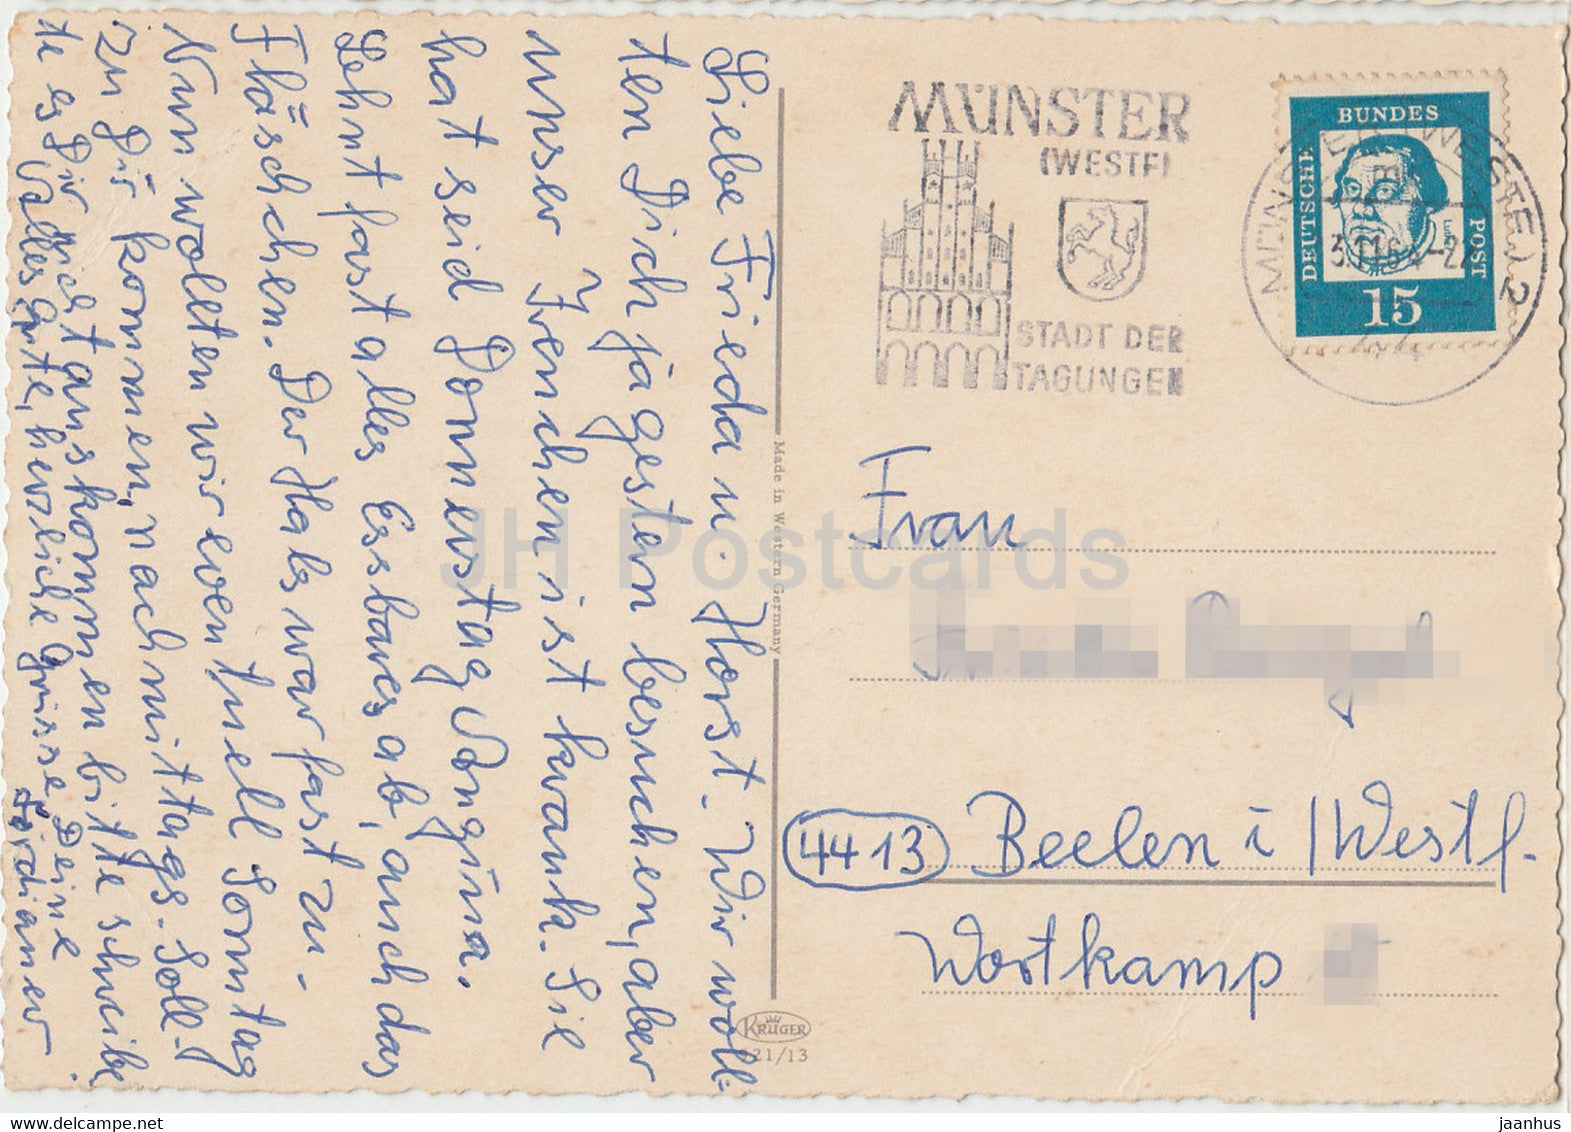 Liebe Frieda u. Horst. Wir woll-
ten Dich ja gestern besuchen, aber
unser Irenchen ist krank. Sie
hat seid Donnerstag Vongina.
Lehnt fast alles Essbares ab, auch das
Fläschchen. Der Hals war fast zu-
Nun wollten wir eventuell Sonntag
zu Dir kommen, nachmittags. Soll-
te es Dir nicht auskommen bitte schreibe.
Alles Gute, herzliche Grüsse Deine
MÜNSTER
(WESTF)
STADT DER
TAGUNGEN
MÜNSTER (WESTF) 2
DEUTSCHE
BUNDES
POST
15
Made in Western Germany
KRÜGER
21/13
Frau
4413 Beelen i/Westf.
Wortkamp
JH Postcards
delcampe.net
jaanhus